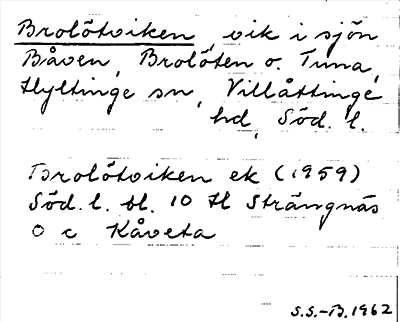 Brolötviken, vik i sjön
Båven, Brolöten o. Tuna,
Hyltinge sn, Villåttinge
hd, Söd. l.
Brolötviken ek (1959)
Söd. l. bl. 10 tl Strängnäs
O c Kåveta
S.S.-B. 1962